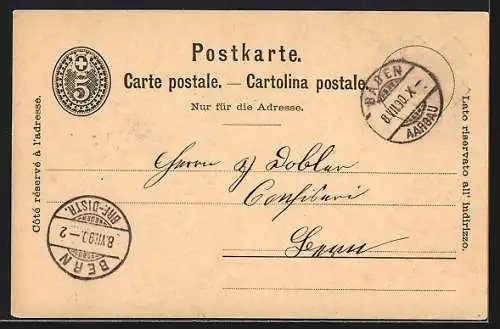 5
Postkarte.
Carte postale. — Cartolina postale.
Nur für die Adresse.
BADEN
8.VII.90.X-
AARGAU
Côté réservé à l'adresse.
Lato riservato all' indirizzo.
Herrn J. Dobler
Confiseri
Bern
BRF-DISTR.
8.VII.90.-2
BERN